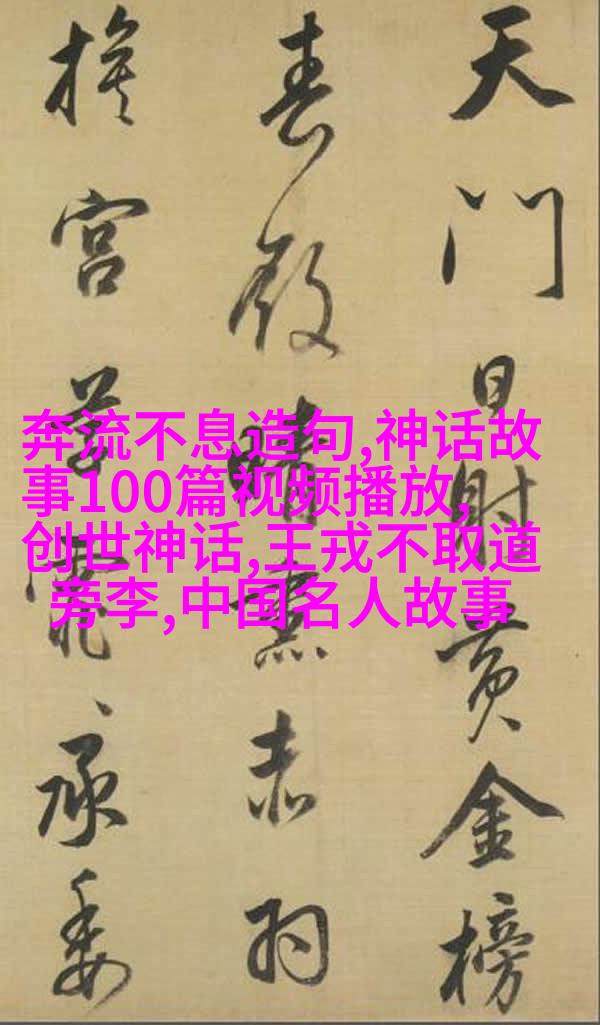 天門日射黄金榜
春殿晴熏赤羽
旗宮草霏〻承委
奔流不息造句,神话故
事100篇视频播放,
创世神话,王戎不取道
旁李,中国名人故事